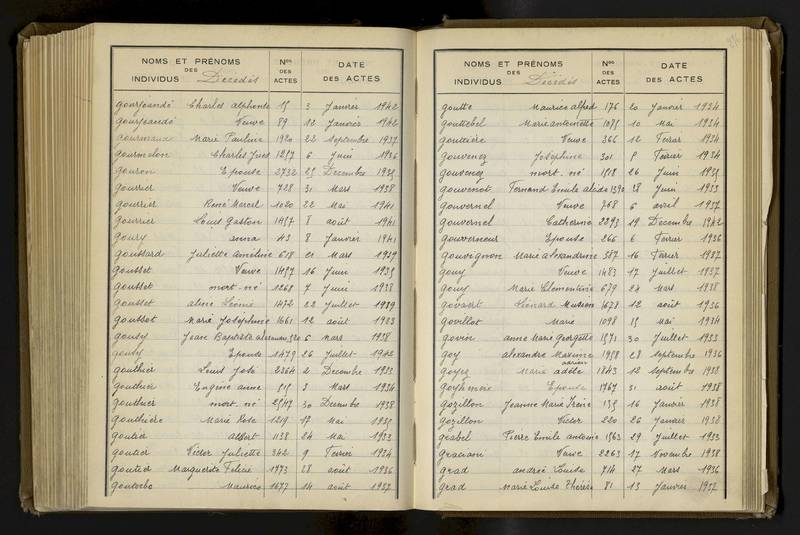 NOMS ET PRÉNOMS DES INDIVIDUS Décédés Nos DES ACTES DATE DES ACTES
gourjeandé Charles alphonse 15 3 Janvier 1942
gourjeandé Veuve 89 12 Janvier 1942
gourmaud Marie Pauline 1920 22 septembre 1937
gourmelon Charles Yves 1257 6 Juin 1936
gouron Epouse 2732 25 Decembre 1939
gourrier Veuve 728 31 Mars 1938
gourrier René Marcel 1020 22 Mai 1941
gourrier Louis Gaston 1457 8 août 1941
goury anna 43 8 Janvier 1941
goussard Juliette améline 618 21 Mars 1939
gousset Veuve 1497 16 Juin 1939
gousset mort né 1268 7 Juin 1938
gousset aline Léonie 1472 22 Juillet 1939
goussot Marie Josephine 1661 12 août 1933
gousy Jean Baptiste 520 6 mars 1938
gousy Epouse 1479 26 Juillet 1942
gouthier Louis José 2264 2 Decembre 1933
gouthier Eugène anne 515 3 Mars 1934
gouthier mort né 2547 30 Decembre 1938
gouthière Marie Rose 1219 17 Mai 1939
goutier albert 1138 24 Mai 1933
goutier Victor Juliette 342 9 Fevrier 1934
goutier Marguerite Felicie 1773 28 août 1936
goutorbe Maurice 1677 14 août 1937
NOMS ET PRÉNOMS DES INDIVIDUS Décédés Nos DES ACTES DATE DES ACTES
goutte Maurice alfred 176 20 Janvier 1934
gouttebel Marie antoinette 1075 10 Mai 1934
gouttière Veuve 366 12 Fevrier 1934
gouvenez Joséphine 301 8 Fevrier 1934
gouvenez mort né 1518 26 Juin 1939
gouvenot Fernand Emile 1390 28 Juin 1933
gouvernel Veuve 768 6 avril 1937
gouvernel Catherine 2293 19 Decembre 1942
gouverneur Epouse 266 6 Fevrier 1936
gouvignon Marie alexandrine 387 16 Fevrier 1937
gouy Veuve 1483 17 Juillet 1937
gouy Marie Clementine 679 24 Mars 1938
govaert Lienard 1678 12 août 1936
govillot Marie 1098 15 Mai 1934
govin anne Marie Georgette 1571 30 Juillet 1933
goy alexandre Maxime adrien 1958 28 septembre 1936
goyez Marie adèle 1843 12 septembre 1938
Epouse 1767 31 août 1938
gozillon Jeanne Marie Irène 139 16 Janvier 1938
gozillon Victor 220 26 Janvier 1938
grabel Pierre Emile antoine 1563 29 Juillet 1933
graciani Veuve 2263 17 Novembre 1938
grad andrée Louise 714 27 Mars 1936
grad Marie Louise Thérèse 81 13 Janvier 1937